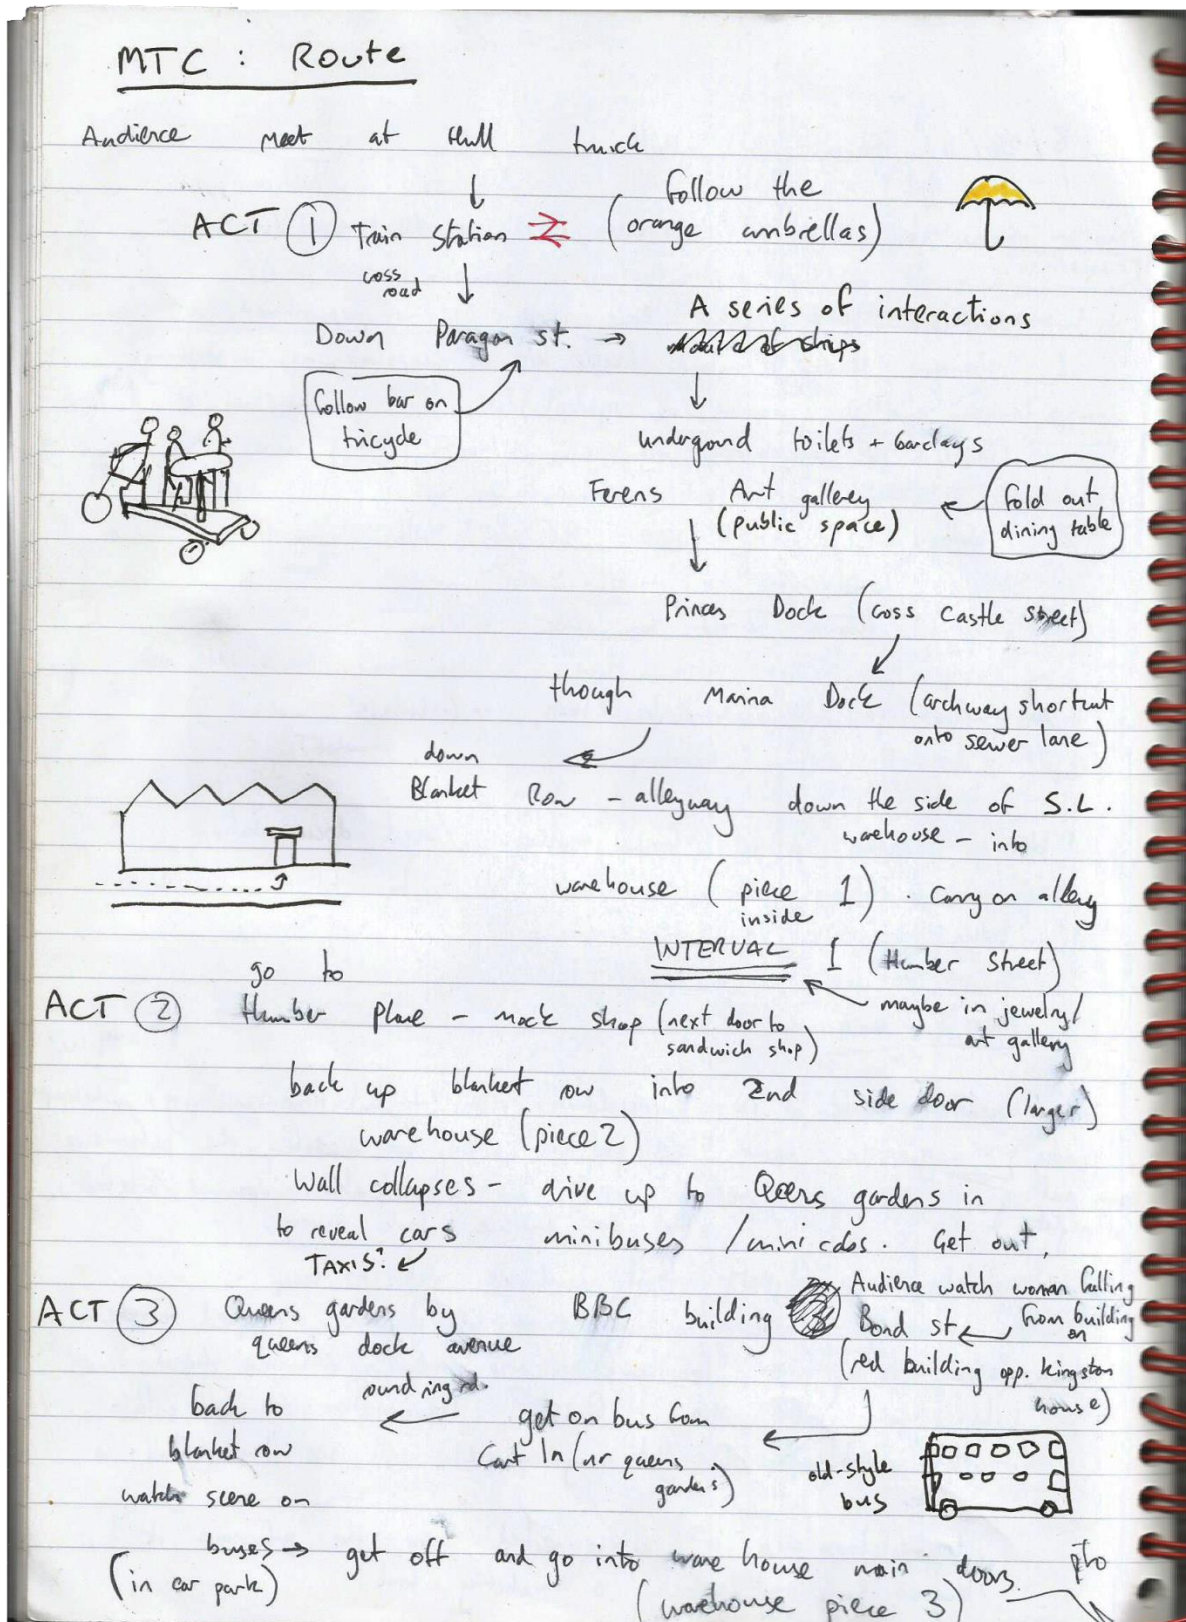 MTC : Route
Audience meet at Hull truck
Follow the
ACT 1 Train Station (orange umbrellas)
coss
road
A series of interactions
Down Paragon st. →
Follow bar on
tricycle
undergound toilets + barclays
Ferens Art gallerey
(public space)
Fold out
dining table
Princes Dock (coss Castle street)
though Marina Dock (archway shortcut
onto sewer lane)
down
Blanket Row - alleyway down the side of S.L.
warehouse - into
warehouse (piece 1) . Carry on alleey
inside
INTERVAL 1 (Humber Street)
maybe in jewelry/
art gallery
go to
ACT 2 Humber Place - mock shop (next door to
sandwich shop)
back up blanket row into 2nd side door (larger)
warehouse (piece 2)
Wall collapses - drive up to Qeens gardens in
to reveal cars minibuses / mini cabs. Get out,
TAXIS?
ACT 3 Queens gardens by BBC building
queens dock avenue
Audience watch woman falling
from building
on
Bond st
(red building opp. kingston
house)
round ring rd.
get on bus from
Cart ln (nr queens
gardens)
old-style
bus
back to
blanket row
watch scene on
buses → get off and go into warehouse main doors. pto
(in car park) (warehouse piece 3)